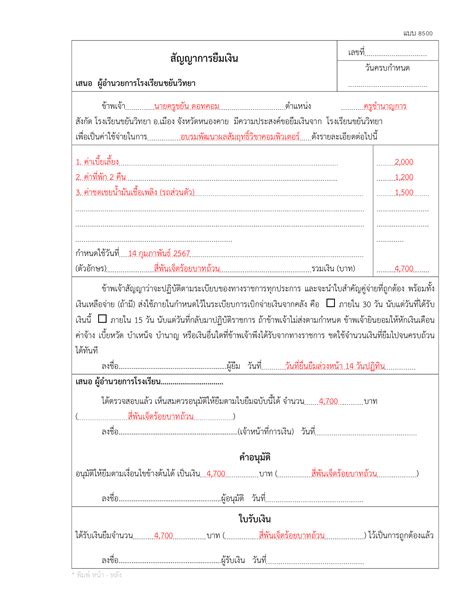 แบบ 8500
สัญญาการยืมเงิน
เลขที่................................
เสนอ ผู้อำนวยการโรงเรียนขยันวิทยา
วันครบกำหนด
ข้าพเจ้า..........นายครูขยัน ดอทคอม......................ตำแหน่ง.................ครูชำนาญการ
สังกัด โรงเรียนขยันวิทยา อ.เมือง จังหวัดหนองคาย มีความประสงค์ขอยืมเงินจาก โรงเรียนขยันวิทยา
เพื่อเป็นค่าใช้จ่ายในการ..........อบรมพัฒนาผลสัมฤทธิ์วิชาคอมพิวเตอร์......ดังรายละเอียดต่อไปนี้
1. ค่าเบี้ยเลี้ยง..........2,000
2. ค่าที่พัก 2 คืน..........1,200
3. ค่าชดเชยน้ำมันเชื้อเพลิง (รถส่วนตัว)..........1,500
กำหนดใช้วันที่....14 กุมภาพันธ์ 2567..........
(ตัวอักษร)..........สี่พันเจ็ดร้อยบาทถ้วน..........รวมเงิน (บาท) 4,700
ข้าพเจ้าสัญญาว่าจะปฏิบัติตามระเบียบของทางราชการทุกประการ และจะนำใบสำคัญคู่จ่ายที่ถูกต้อง พร้อมทั้ง
เงินเหลือจ่าย (ถ้ามี) ส่งใช้ภายในกำหนดไว้ในระเบียบการเบิกจ่ายเงินจากคลัง คือ ☐ ภายใน 30 วัน นับแต่วันที่ได้รับ
เงินนี้ ☐ ภายใน 15 วัน นับแต่วันที่กลับมาปฏิบัติราชการ ถ้าข้าพเจ้าไม่ส่งตามกำหนด ข้าพเจ้ายินยอมให้หักเงินเดือน
ค่าจ้าง เบี้ยหวัด บำเหน็จ บำนาญ หรือเงินอื่นใดที่ข้าพเจ้าพึงได้รับจากทางราชการ ชดใช้จำนวนเงินที่ยืมไปจนครบถ้วน
ได้ทันที
ลงชื่อ..............................ผู้ยืม วันที่..........วันที่ยื่นยืมล่วงหน้า 14 วันปฏิทิน..........
เสนอ ผู้อำนวยการโรงเรียน..............................
ได้ตรวจสอบแล้ว เห็นสมควรอนุมัติให้ยืมตามใบยืมฉบับนี้ได้ จำนวน......4,700..........บาท
(..........สี่พันเจ็ดร้อยบาทถ้วน..........)
ลงชื่อ..............................(เจ้าหน้าที่การเงิน) วันที่..............................
คำอนุมัติ
อนุมัติให้ยืมตามเงื่อนไขข้างต้นได้ เป็นเงิน 4,700..........บาท (..........สี่พันเจ็ดร้อยบาทถ้วน..........)
ลงชื่อ..............................ผู้อนุมัติ วันที่..............................
ใบรับเงิน
ได้รับเงินยืมจำนวน..........4,700..........บาท (..........สี่พันเจ็ดร้อยบาทถ้วน..........) ไว้เป็นการถูกต้องแล้ว
ลงชื่อ..............................ผู้รับเงิน วันที่..............................
* พิมพ์ หน้า - หลัง